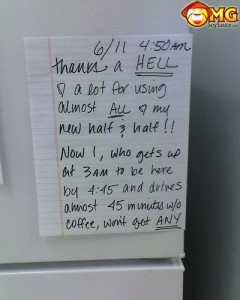 OMG
6/11 4:50 AM
thanks a HELL
of a lot for using
almost ALL of my
new half & half!!
Now I, who gets up
at 3 AM to be here
by 4:45 and drives
almost 45 minutes w/o
coffee, won't get ANY